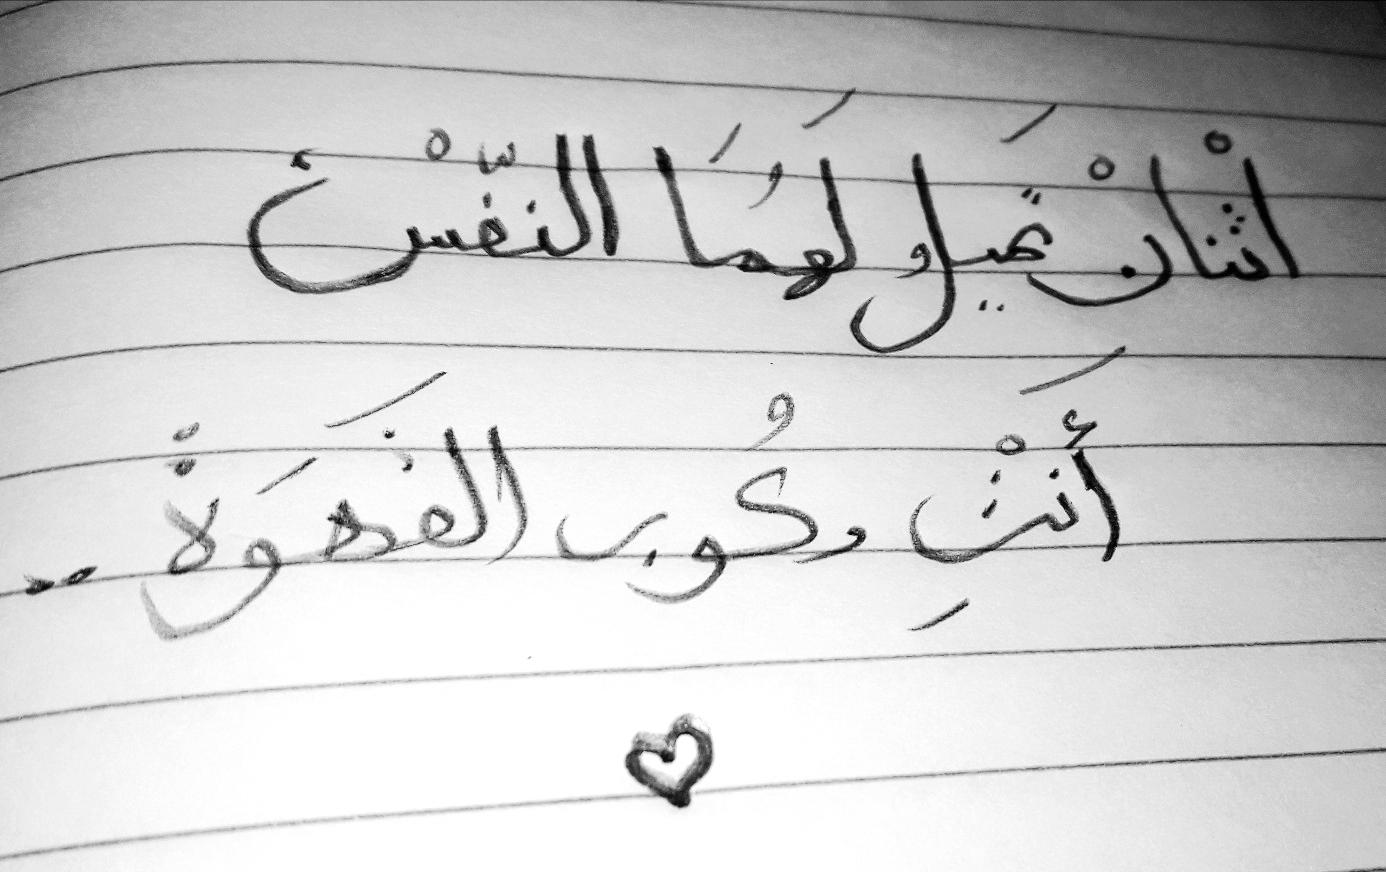 اثْنانْ تَميلُ لَهُمَا النّفْسُ
أَنْتِ وكُوب القَهَوَة ..